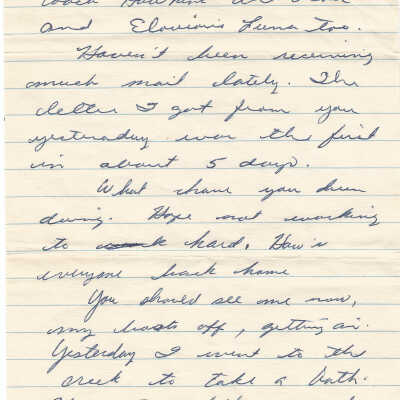 and Luna Too.
Haven't been receiving
much mail lately. The
letter I got from you
yesterday was the first
in about 5 days.
What have you been
doing. Hope not working
to hard. How's
everyone back home
You should see me now,
my boots off, getting air.
Yesterday I went to the
creek to take a bath.